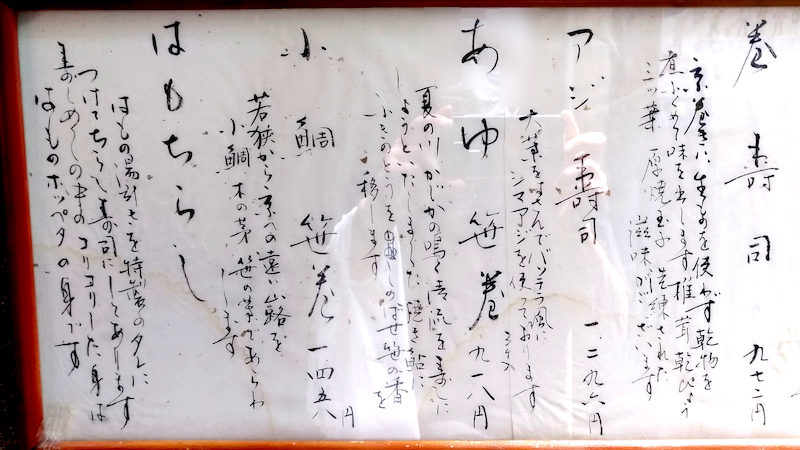 巻寿司 九七二円
京巻きは生ものを使わず乾物を
煮ふくめ味を出します椎茸乾ぴょう
三ッ葉 厚焼玉子 洗練された
滋味がございます
アジ寿司 一、二九六円
大葉をはさんでバッテラ風に
シマアジを使っております
あゆ笹巻 九一八円
夏の川かじかの鳴く清流を寿しに
しようといたしました 焼き鮎に
ふきのとうを しのばせ笹の香を
移します
小鯛笹巻 一四五八円
若狭から京への遠い山路を
小鯛 木の芽 笹の葉であらわ
します
はもちらし
はもの湯引きを特製のタレに
つけてちらし寿司にしてあります
寿しめしの中のコリコリした身は
はものホッペタの身です